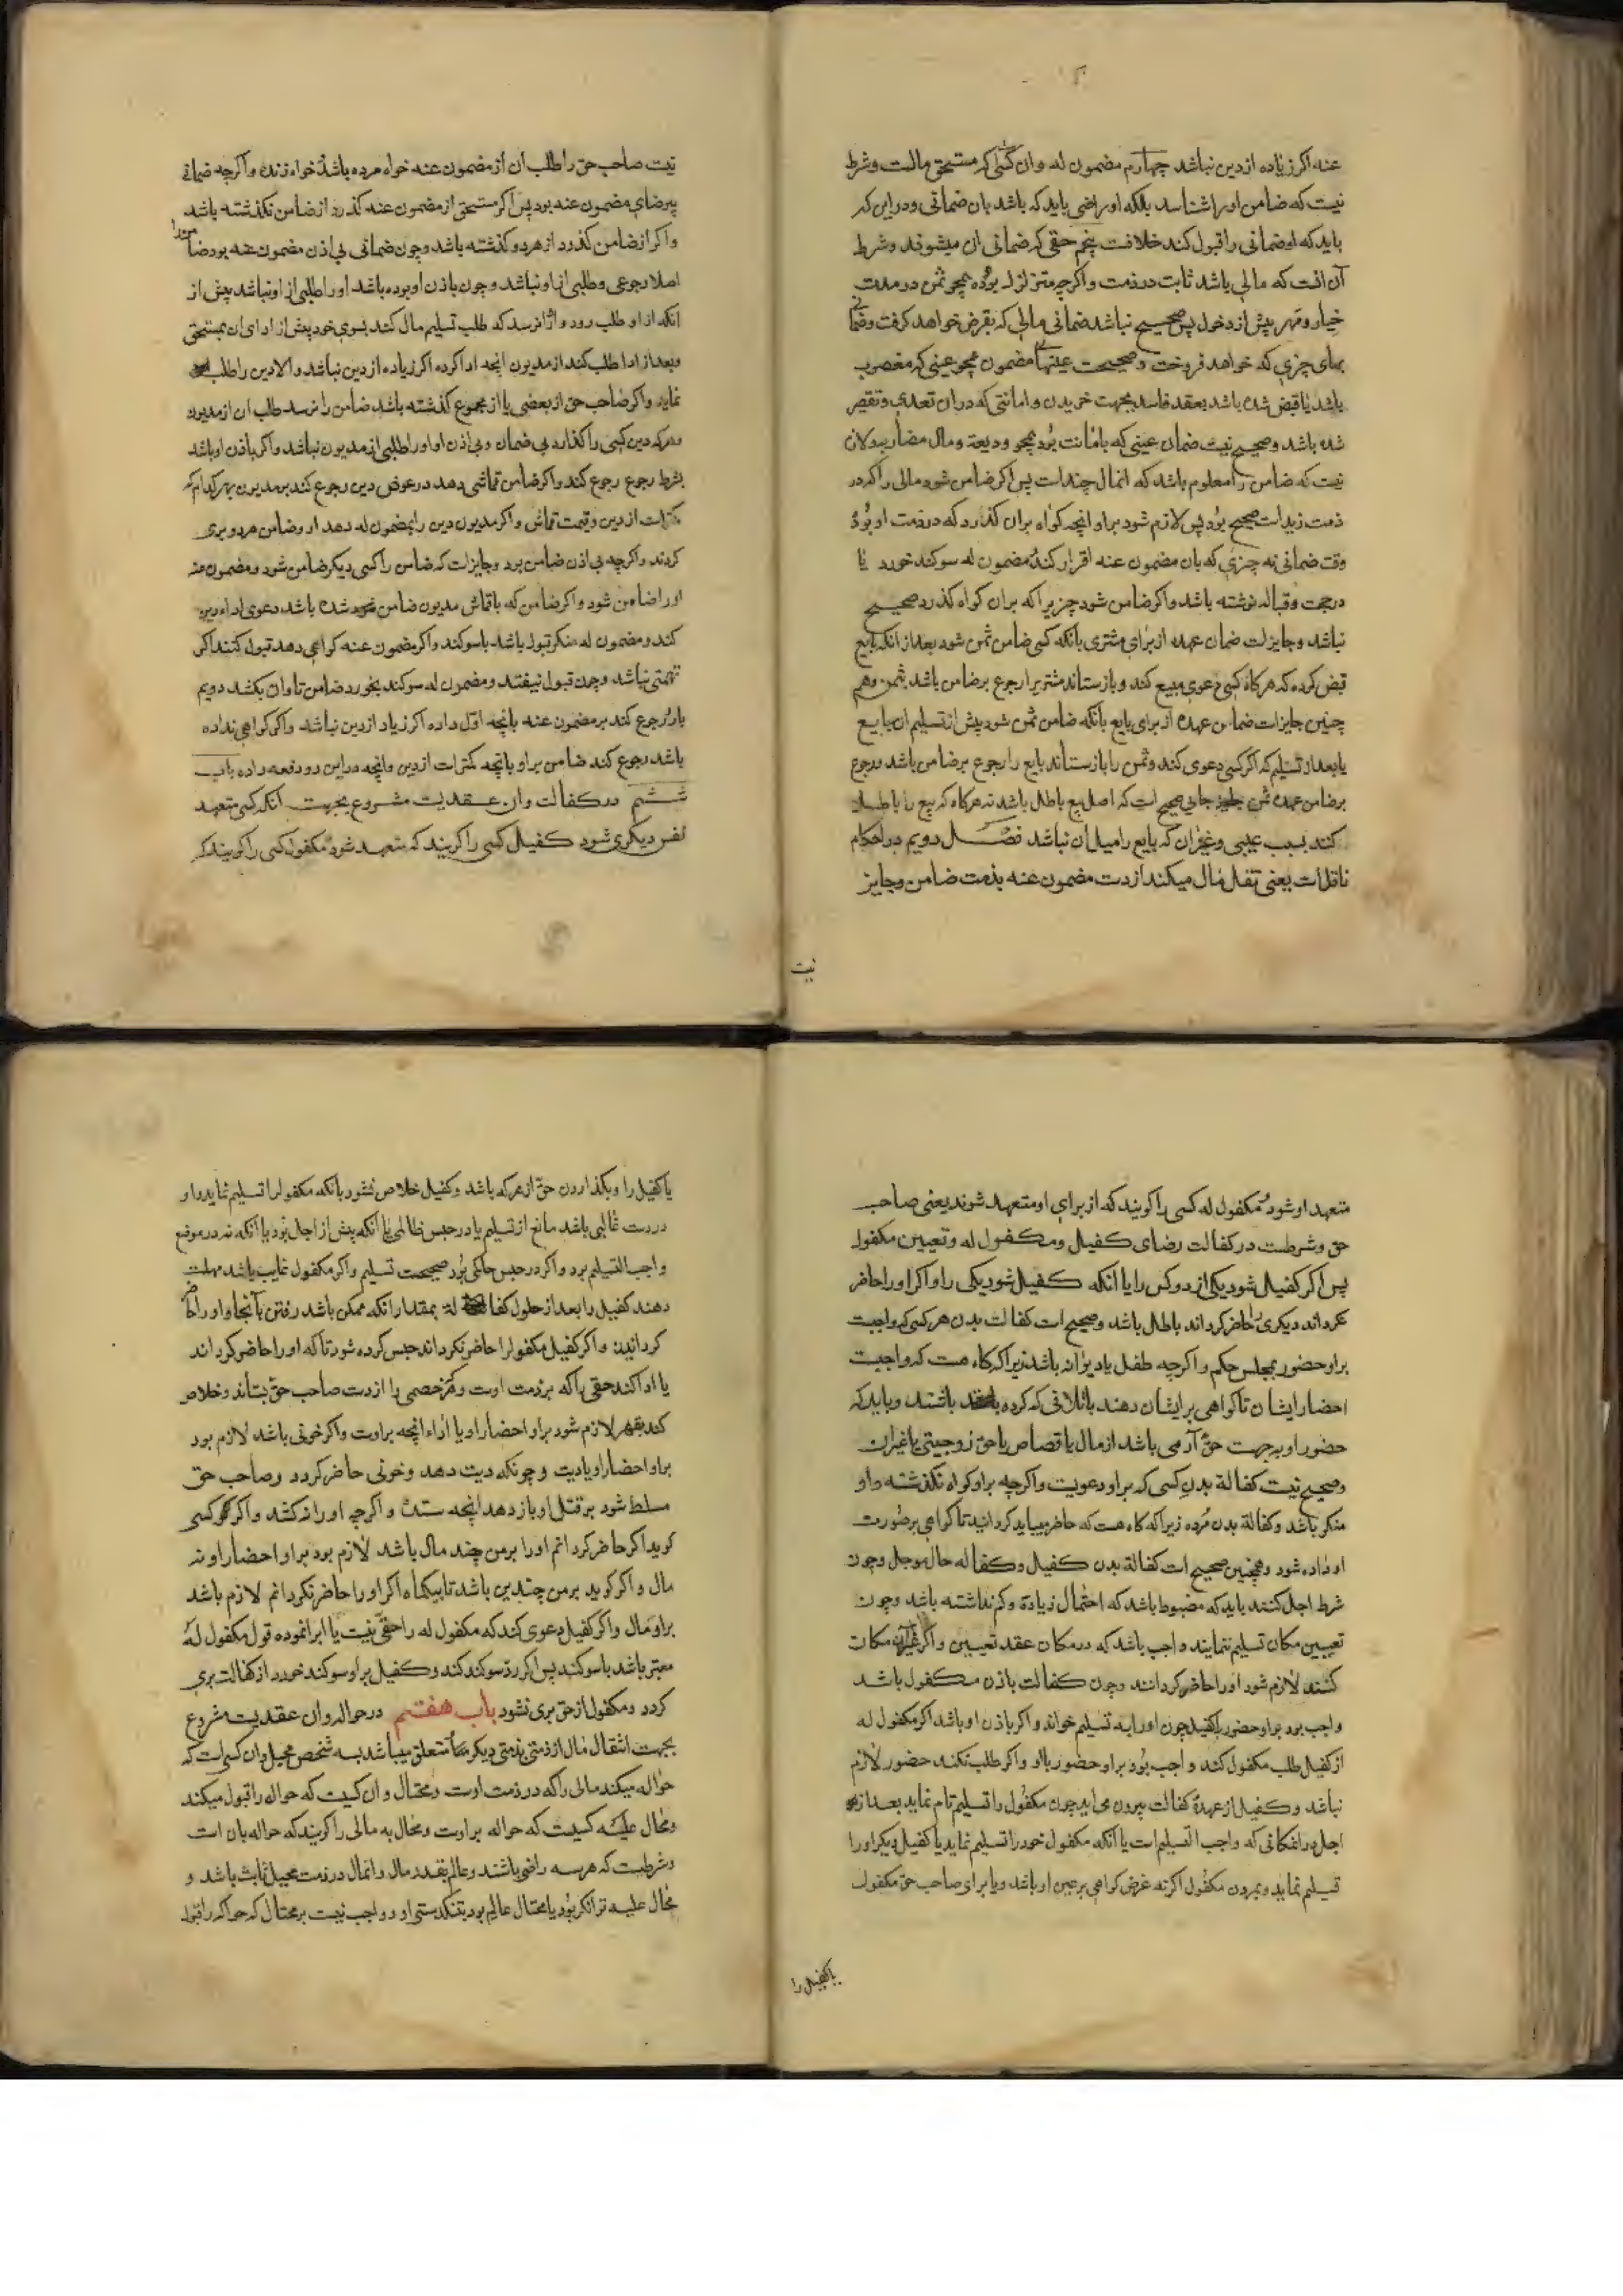 عنه اکر زیاده از دین نباشد چهارم مضمون له وان کسی که مستحق مالست وشرط
نیست که ضامن اورا شناسد بلکه او راضی باید که باشد بان ضمانی ودر این که
باید که او ضمانی را قبول کند خلافست پنجم حقی که ضمانی ان میشوند وشرط
آن انست که مالی باشد ثابت در ذمت واکرچه متزلزل بوُد همچو ثمن در مدت
خیار ومهر پیش از دخول پس صحیح نباشد ضمانی مالی که بقرض خواهد کرفت وضمانی
بهای چیزی که خواهد فروخت وصحیحست عینهای مضمون همچو عینی که مغصوب
باشد یا قبض شده باشد بعقد فاسد بجهت خریدن وامانتی که دران تعدی وتقصیر
شده باشد وصحیح نیست ضمان عینی که بامانت بُود همچو ودیعة ومال مضاربه ولازم
نیست که ضامن را معلوم باشد که انمال چندست پس اکر ضامن شود مالی را که در
ذمت زیدست صحیح بوُد پس لازم شود براو انچه کواه بران کذارد که در ذمت او بوُدُ
وقت ضمانی نه چیزی که بان مضمون عنه اقرار کند مضمون له سوکند خورد یا
در حجت وقباله نوشته باشد واکر ضامن شود چیزیرا که بران کواه کذرد صحیح
نباشد وجایزست ضمان عهده از برای مشتری بانکه کسی ضامن ثمن شود بعد از انکه بایع
قبض کرده که هرکاه کسی دعوی مبیع کند وبازستاند مشتریرا رجوع بر ضامن باشد بثمن وهم
چنین جایزاست ضمان عهده از برای بایع بانکه ضامن ثمن شود پیش از تسلیم ان ببایع
یا بعد از تسلیم که اکر کسی دعوی کند وثمن را بازستاند بایع را رجوع بر ضامن باشد ورجوع
بر ضامن عهده ثمن جایی صحیح است که اصل بیع باطل باشد نه هرکاه که بیع را باطل
کند بسبب عیبی وغیران که بایع را میل ان نباشد فصل دویم در احکام
ناقلست یعنی نقل مال میکند از دست مضمون عنه بذمت ضامن وجایز
نیست
نیست صاحب حق را طلب ان از مضمون عنه خواه مرده باشد خواه زنده واکرچه ضمانی
بیرضای مضمون عنه بود پس اکر مستحق از مضمون عنه کذرد از ضامن نکذشته باشد
واکر از ضامن کذرد از هردو کذشته باشد وچون ضمانی بی اذن مضمون عنه بود ضامنرا
اصلا رجوعی وطلبی از او نباشد وچون باذن او بوده باشد اورا طلبی از او نباشد پیش از
انکه از او طلب رود واورا نرسد که طلب تسلیم مال کند بسوی خود پیش از ادای ان بمستحق
وبعد از ادا طلب کند از مدیون انچه ادا کرده اکر زیاده از دین نباشد والا دین را طلب
نماید واکر صاحب حق از بعضی یا از مجموع کذشته باشد ضامن را نرسد طلب ان از مدیون
وهرکه دین کسی را کذارد بی ضمان وبی اذن او اورا طلبی از مدیون نباشد واکر باذن او باشد
بشرط رجوع رجوع کند واکر ضامن قماشی دهد در عوض دین رجوع کند بر مدیون بهر کدام که
کمترست از دین وقیمت قماش واکر مدیون دین را بمضمون له دهد او وضامن هردو بری
کردند واکرچه بی اذن ضامن بود وجایزاست که ضامن را کسی دیکر ضامن شود ومضمون عنه
اورا ضامن شود واکر ضامن که با قماش مدیون ضامن شده باشد دعوی اداء دین
کند ومضمون له منکر قبول باشد با سوکند واکر مضمون عنه کواهی دهد قبول کنند اکر
تهمتی نباشد وچون قبول نیفتد ومضمون له سوکند بخورد ضامن تاوان بکشد دویم
بار ورجوع کند بر مضمون عنه بانچه اوّل داده اکر زیاد از دین نباشد واکر کواهی نداده
باشد رجوع کند ضامن براو بانچه کمترست از دین وانچه در این دو دفعه داده باب
ششم در کفالت وان عقدیست مشروع بجهت آنکه کسی متعهد
نفس دیکری شود کفیل کسی را کویند که متعهد شود ومکفول کسی را کویند که
متعهد او شود ومکفول له کسی را کویند که از برای او متعهد شوند یعنی صاحب
حق وشرطست در کفالت رضای کفیل ومکفول له وتعیین مکفول
پس اکر کفیل شود یکی از دو کس را یا انکه کفیل شود یکی را واکر اورا حاضر
نکرداند دیکری را حاضر کرداند باطل باشد وصحیح است کفالت بدن هر کسی که واجبست
براو حضور بمجلس حکم واکرچه طفل یا دیوانه باشد زیرا که کاه هست که واجبست
احضار ایشان تا کواهی بر ایشان دهند باتلافی که کرده باشند وباید که
حضور او بجهت حق آدمی باشد از مال یا قصاص یا حق زوجیتی یا غیران
وصحیح نیست کفالة بدن کسی که براو دعویست واکرچه براو کواه نکذشته واو
منکر باشد وکفالة بدن مُرده زیرا که کاه هست که حاضر میباید کردانید تا کواهی بر صورت
او داده شود وهمچنین صحیح است کفالة بدن کفیل وکفاله حال وموجل وچون
شرط اجل کنند باید که مضبوط باشد که احتمال زیادة وکم نداشته باشد وچون
تعیین مکان تسلیم ننمایند واجب باشد که در مکان عقد تعیین واکر غیر آن مکان
کنند لازم شود اورا حاضر کردانند وچون کفالت باذن مکفول باشد
واجب بود براو حضور با کفیل چون اورا به تسلیم خواند واکر باذن او باشد اکر مکفول له
از کفیل طلب مکفول کند واجب بوُد براو حضور با او واکر طلب نکند حضور لازم
نباشد وکفیل از عهدهٔ کفالت بیرون می اید چون مکفول را تسلیم تام نماید بعد از
اجل در امکانی که واجب التسلیم است یا آنکه مکفول خود را تسلیم نماید یا کفیل دیکر اورا
تسلیم نماید وبمردن مکفول اکر نه غرض کواهی بر عین او باشد ویا برای صاحب حق مکفول
یا کفیل را
یا کفیل را وبکذاردن حق از هرکه باشد وکفیل خلاص نشود بانکه مکفول را تسلیم نماید واو
در دست غالبی باشد مانع از تسلیم یا در حبس ظالمی یا آنکه پیش از اجل بوُد یا آنکه نه در موضع
واجب التسلیم بود واکر در حبس حاکمی بُود صحیحست تسلیم واکر مکفول غایب باشد مهلت
دهند کفیل را بعد از حلول کفاله بمقدار انکه ممکن باشد رفتن بآنجا واورا حاضر
کردانیدن واکر کفیل مکفول را حاضر نکرداند حبس کرده شود تا که اورا حاضر کرداند
یا ادا کند حقی را که بر ذمت اوست وهرکه خصمی را از دست صاحب حق بستاند وخلاص
کند بقهر لازم شود براو احضار او یا اداء انچه براوست واکر خونی باشد لازم بود
براو احضار او یا دیت وچونکه دیت دهد وخونی حاضر کردد وصاحب حق
مسلط شود بر قتل او باز دهد انچه ستده واکرچه اورا نه کشد واکر کسی
کوید اکر حاضر کردانم اورا بر من چند مال باشد لازم بود براو احضار او نه
مال واکر کوید بر من چندین باشد تا بیکماه اکر اورا حاضر نکردانم لازم باشد
براو مال واکر کفیل دعوی کند که مکفول له را حقی نیست یا ابرا نموده قول مکفول له
معتبر باشد با سوکند پس اکر ردّ سوکند کند وکفیل براو سوکند خورد از کفالت بری
کردد ومکفول از حق بری نشود باب هفتم در حواله وان عقدیست مشروع
بجهت انتقال مال از ذمتی بذمتی دیکر متعلق میباشد بسه شخص محیل وان کسی است که
حواله میکند مالی را که در ذمت اوست ومحتال وان کسیست که حواله را قبول میکند
ومحال علیه کسیست که حواله براوست ومحال به مالی را کویند که حواله بان است
وشرطست که هرسه راضی باشند وعالم بقدر مال وانمال در ذمت محیل ثابت باشد و
محال علیه توانکر بوُد یا محتال عالم بود بتنکدستی او وواجب نیست بر محتال که حواله را قبول